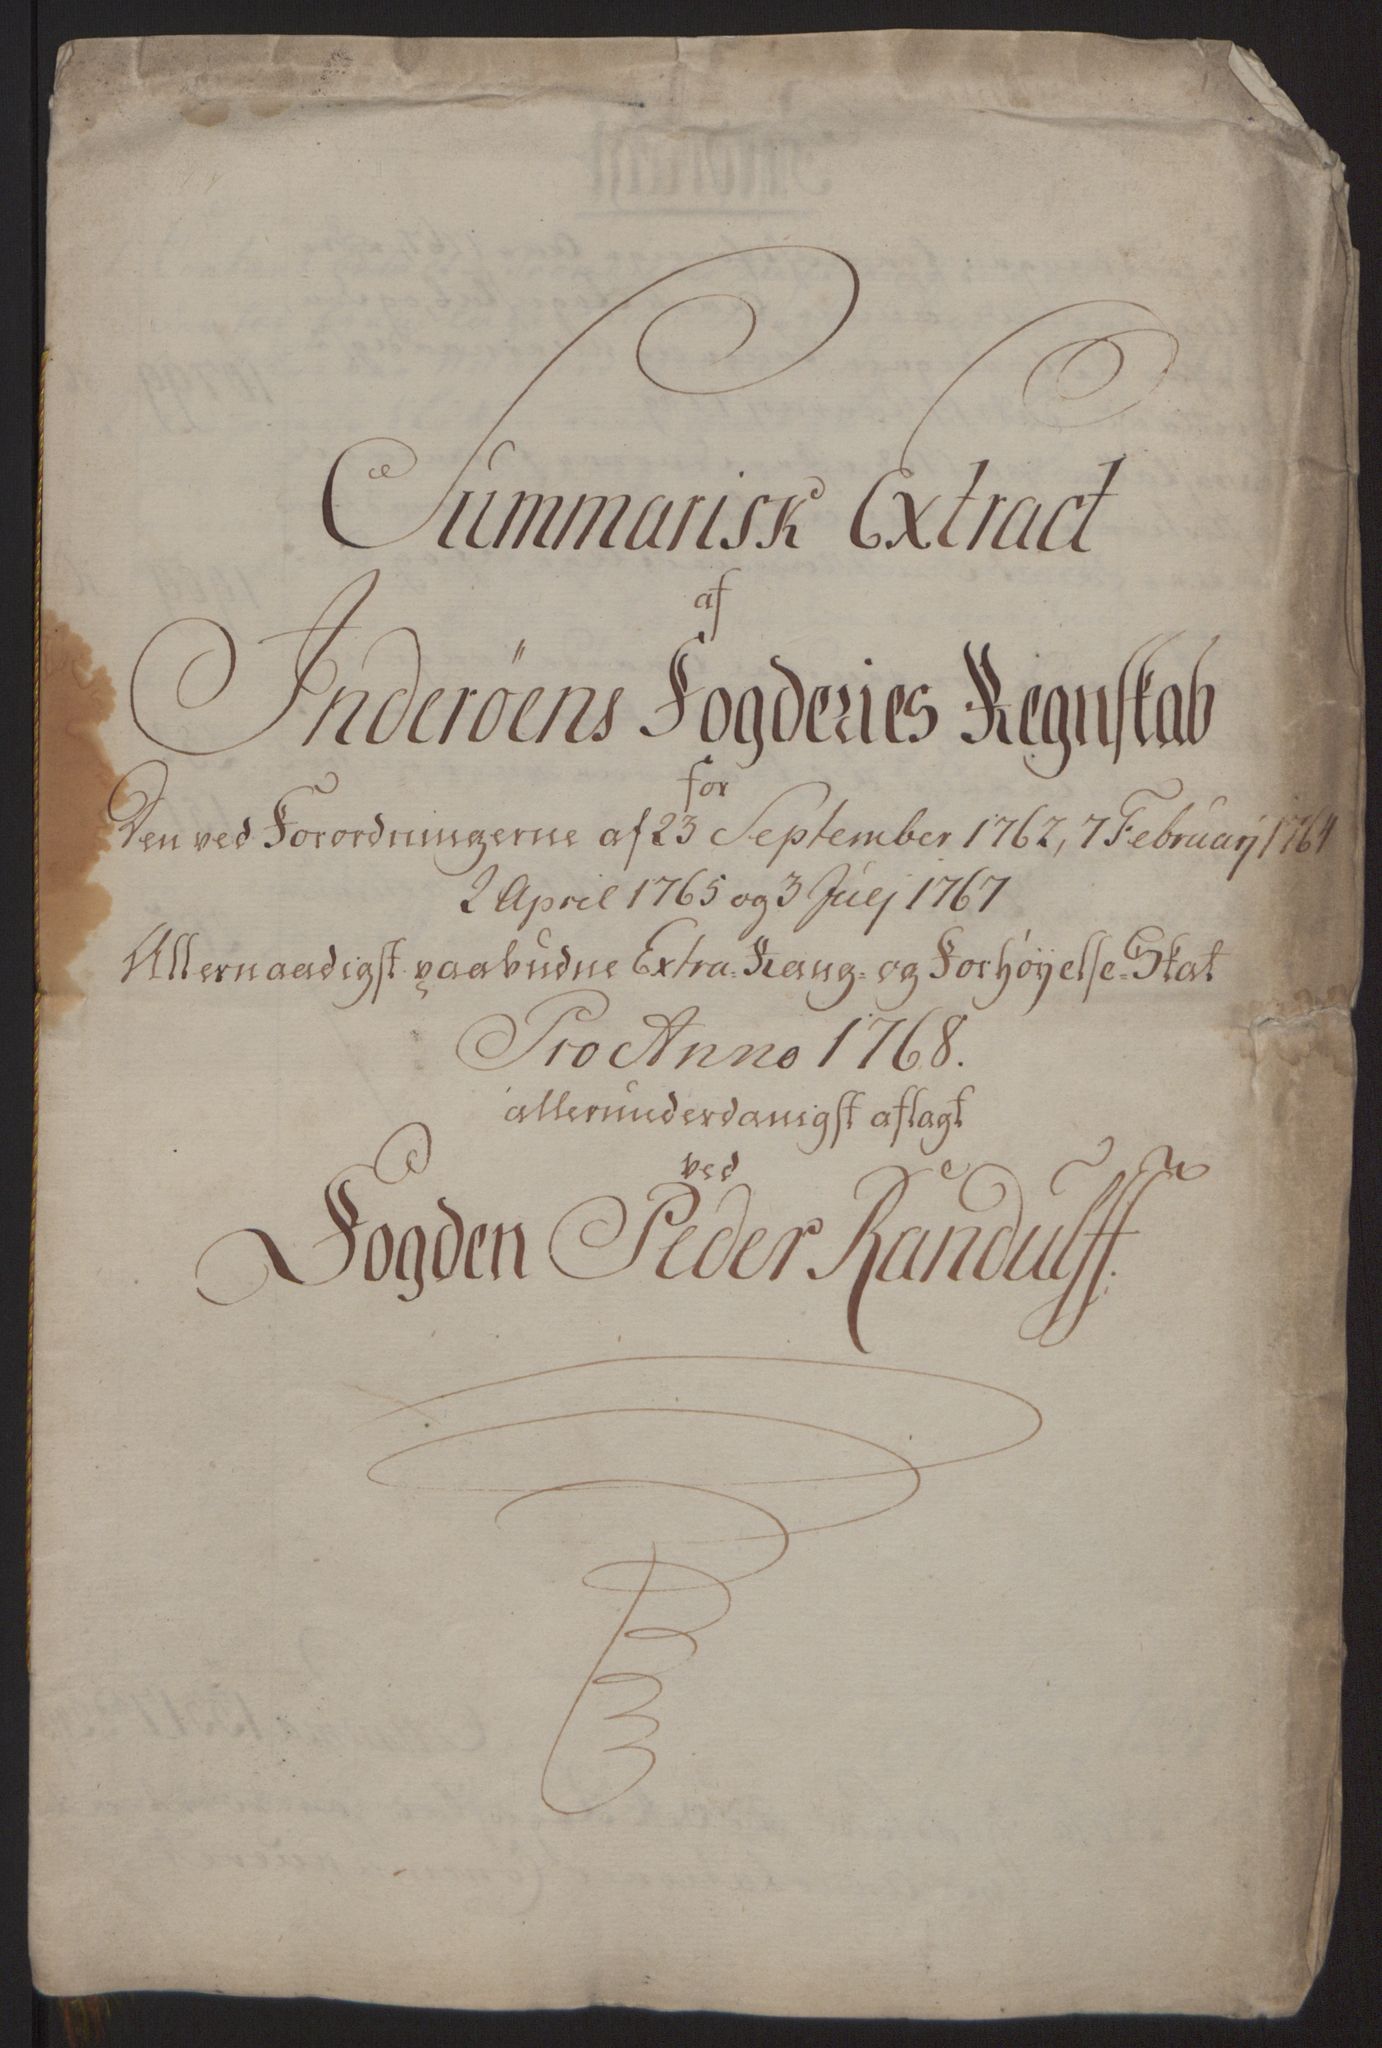 Summarisk Extract
af
Inderöens Fogderies Regnskab
for
Den ved Forordningerne af 23 September 1762, 7 Februarij 1764
2 April 1765 og 3 Julj 1767
Allernaadigst paabudne Extra- Rang- og Forhøyelse-Skat
Pro Anno 1768.
allerunderdanigst aflagt
ved
Fogden Peder Randulff.